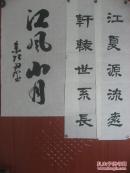 江夏源流遠
軒轅世系長
江风山月